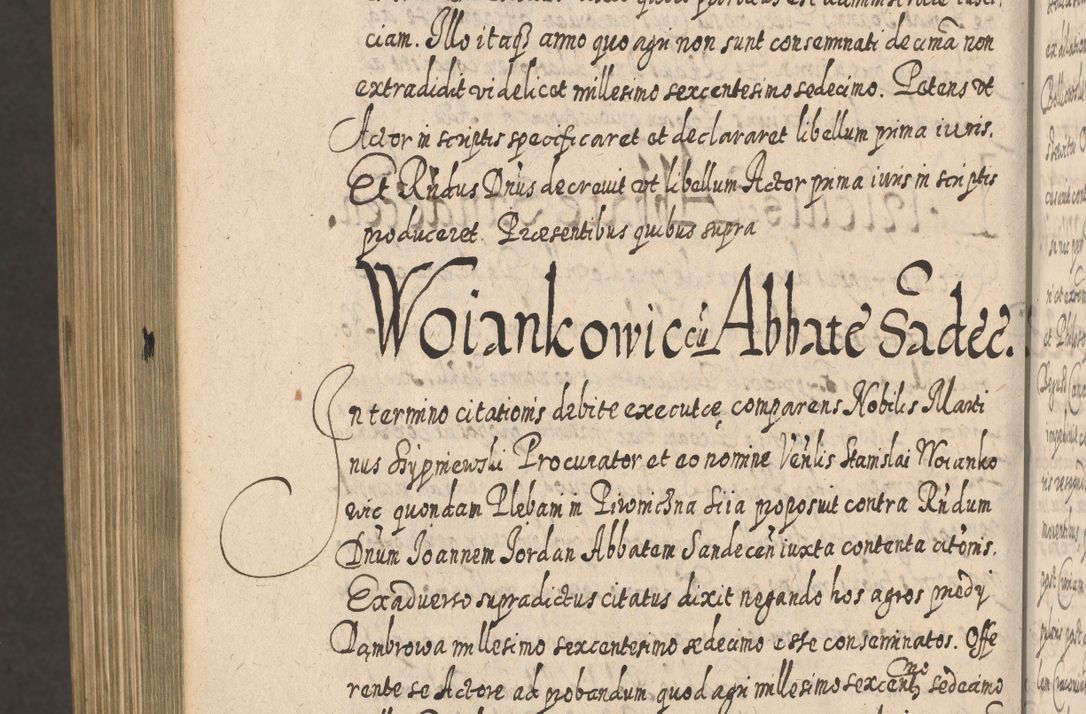 ciam. Illo itaq3 anno quo agri non sunt conseminati decimā non
extradidit videlicet millesimo sexcentesimo sedecimo. Petens vt
Actor in scriptis specificaret et declararet libellum prima iuris.
Et Rńdus Dńus decrevit vt libellum Actor prima iuris in scriptis
produceret. Præsentibus quibus supra
Woiankowic cū Abbate Sadec.
In termino citationis debite executę comparens Nobilis Marti
nus Procurator et eo nomine Veńlis Stanislai Woianko
wic quondam Plebani in Piwniczna siia proposuit contra Rńdum
Dńum Joannem Jordan Abbatem Sandeceń iuxta contenta citōnis.
Ex adverso supradictus citatus dixit negando hos agros prædÿ
Dąmbrowa millesimo sexcentesimo sedecimo esse conseminatos. Offe
rente se Actore ad probandum quod agri millesimo sexcentmo sedecimo